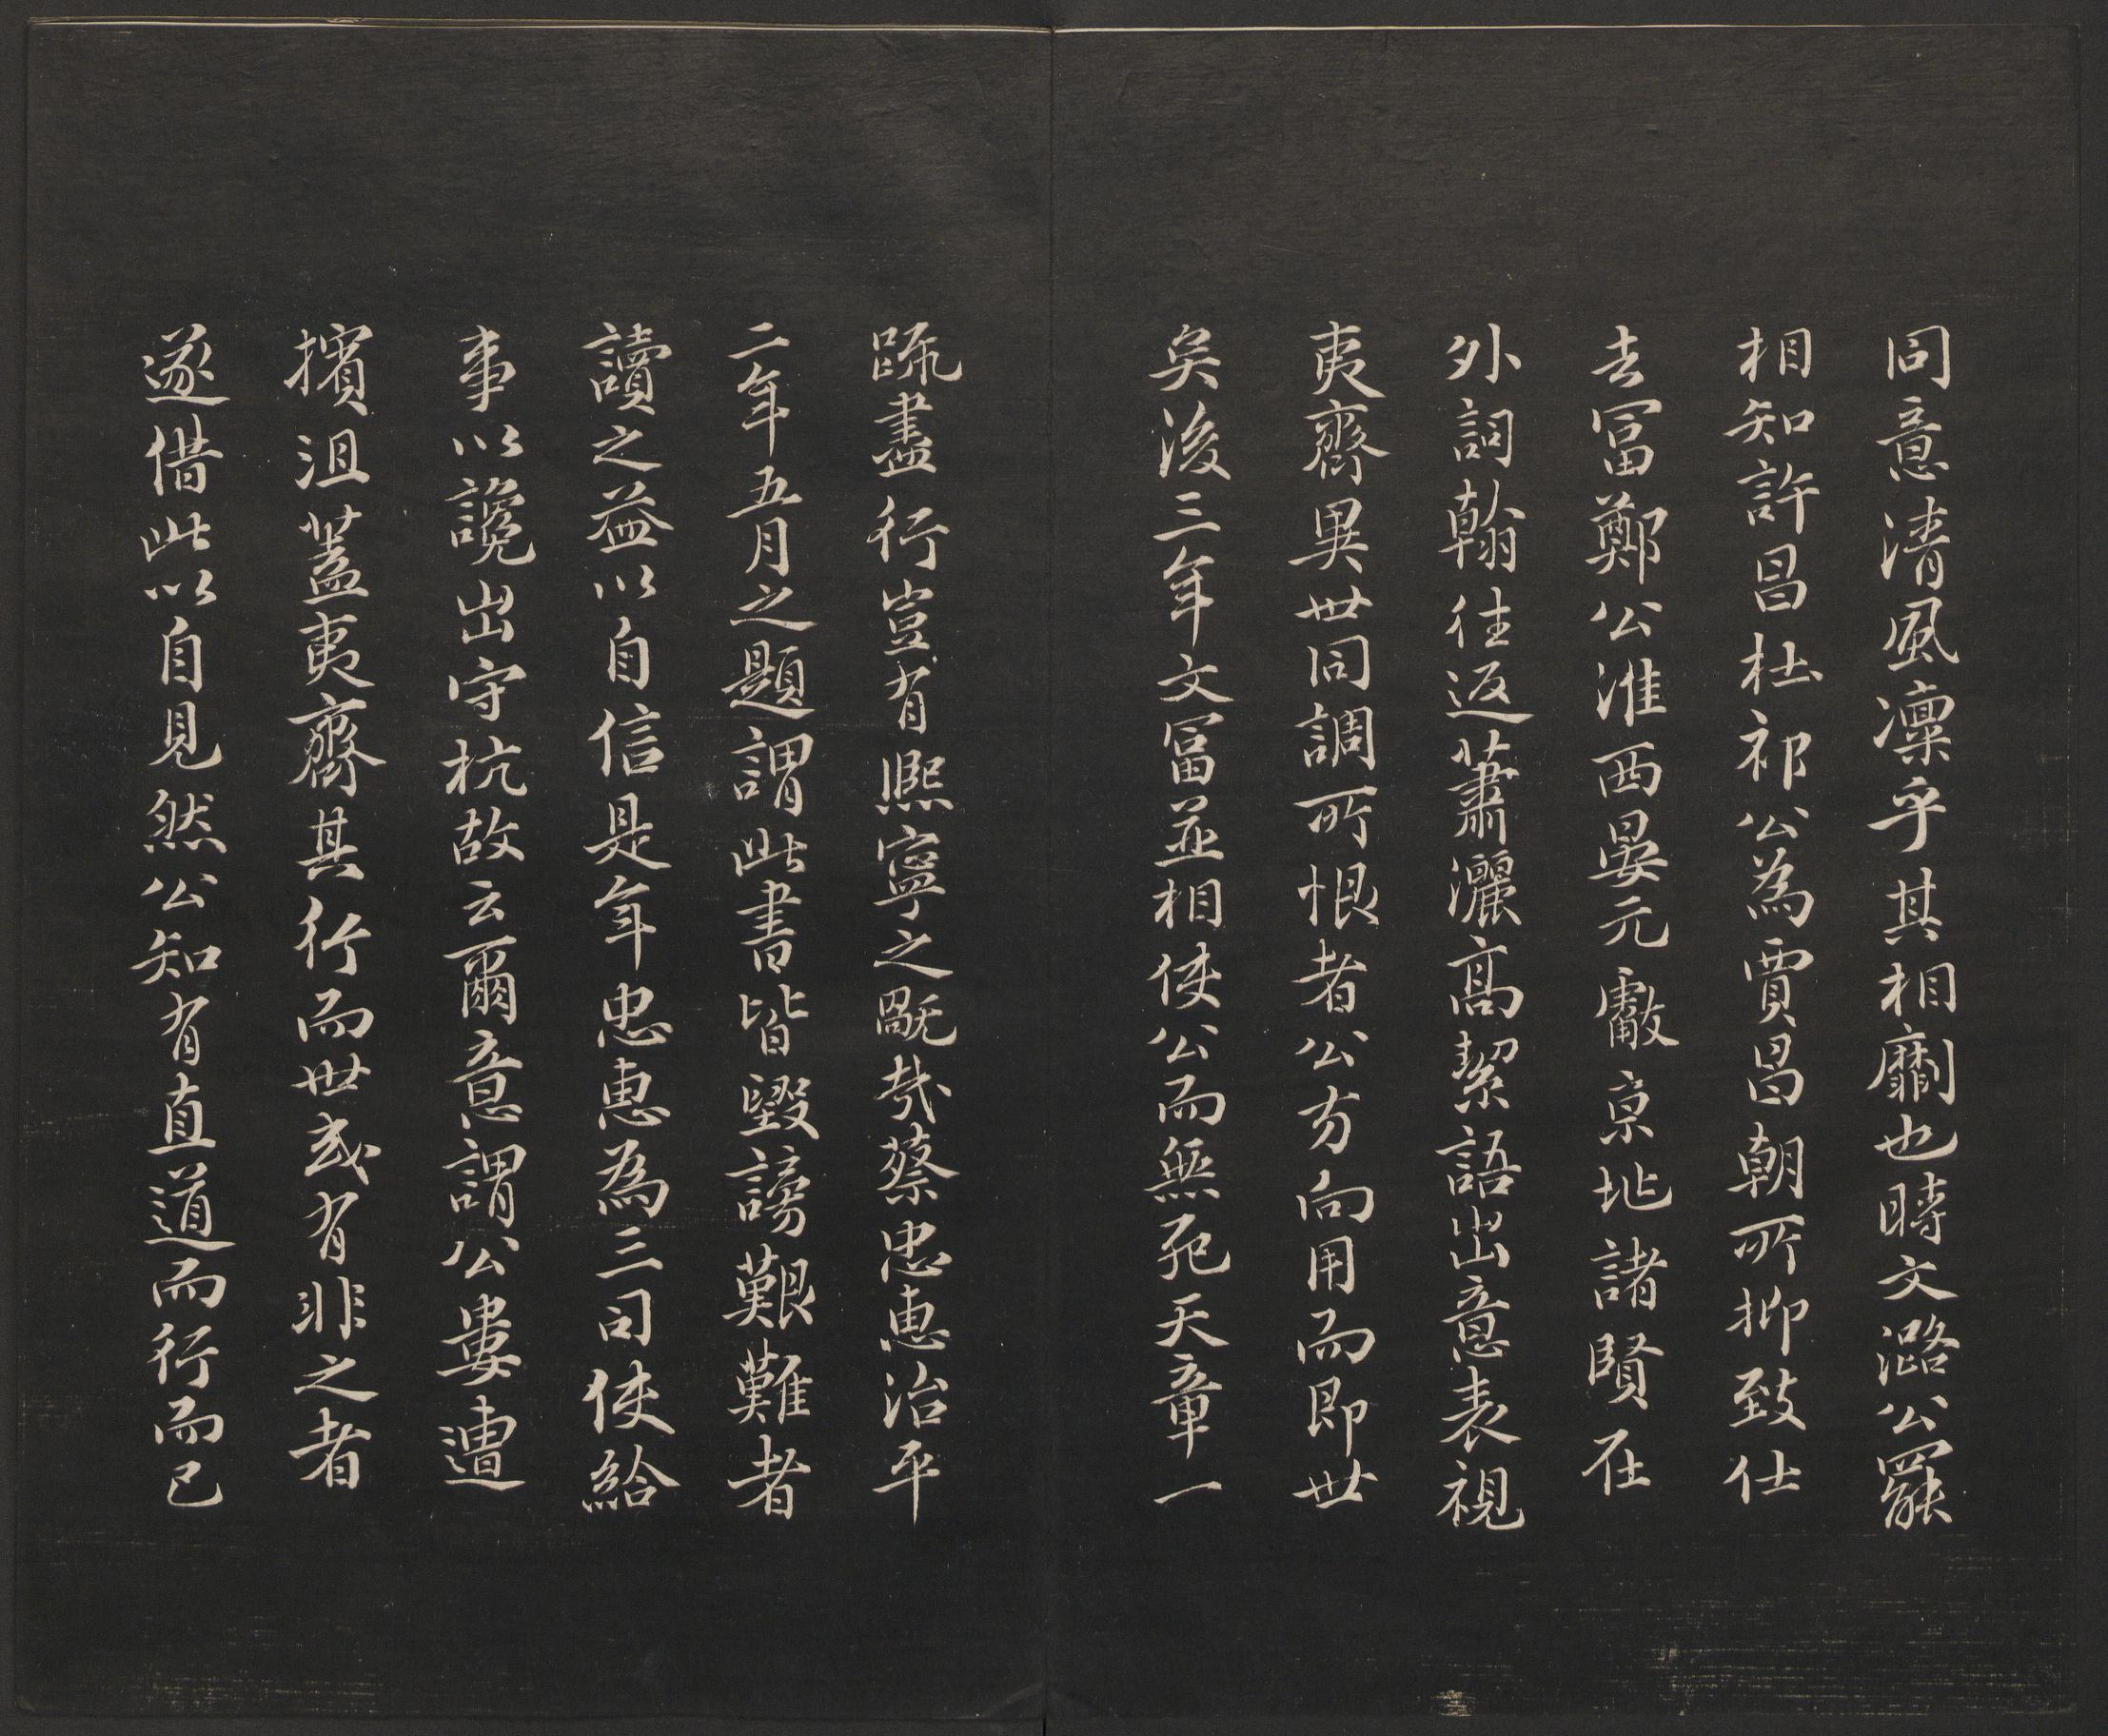 同意清風凜乎其相劘也時文潞公罷
相知許昌杜祁公為賈昌朝所抑致仕
去冨鄭公淮西晏元獻京地諸賢在
外詞翰往返蕭灑高絜語出意表視
夷齊異世同調所恨者公方向用而即世
矣後三年文冨並相使公而無死天章一
疏盡行豈有熙寧之旤哉蔡忠惠治平
二年五月之題謂此書皆毀謗艱難者
讀之益以自信是年忠惠為三司使給
事以讒出守杭故云爾意謂公婁遭
擯沮蓋夷齊其行而世或有非之者
遂借此以自見然公知有直道而行而已